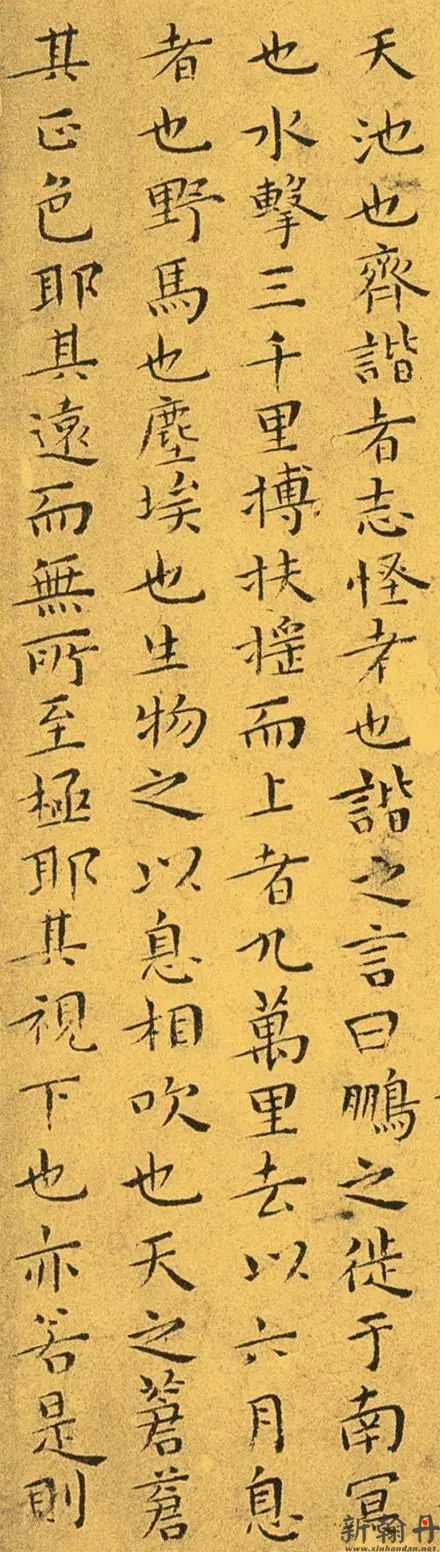 天池也齊諧者志怪者也諧之言曰鵬之徙于南冥
也水擊三千里摶扶摇而上者九萬里去以六月息
者也野馬也塵埃也生物之以息相吹也天之蒼蒼
其正色耶其遠而無所至極耶其視下也亦若是則
新翰丹
www.xinhandan.net